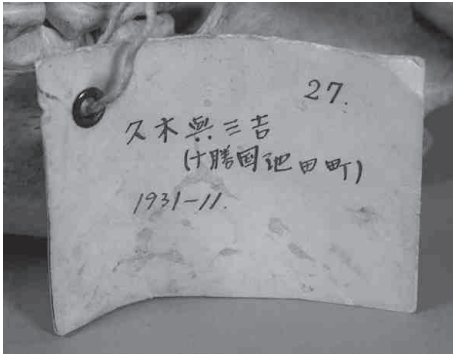 27.
久木與三吉
(十勝国池田町)
1931-11.